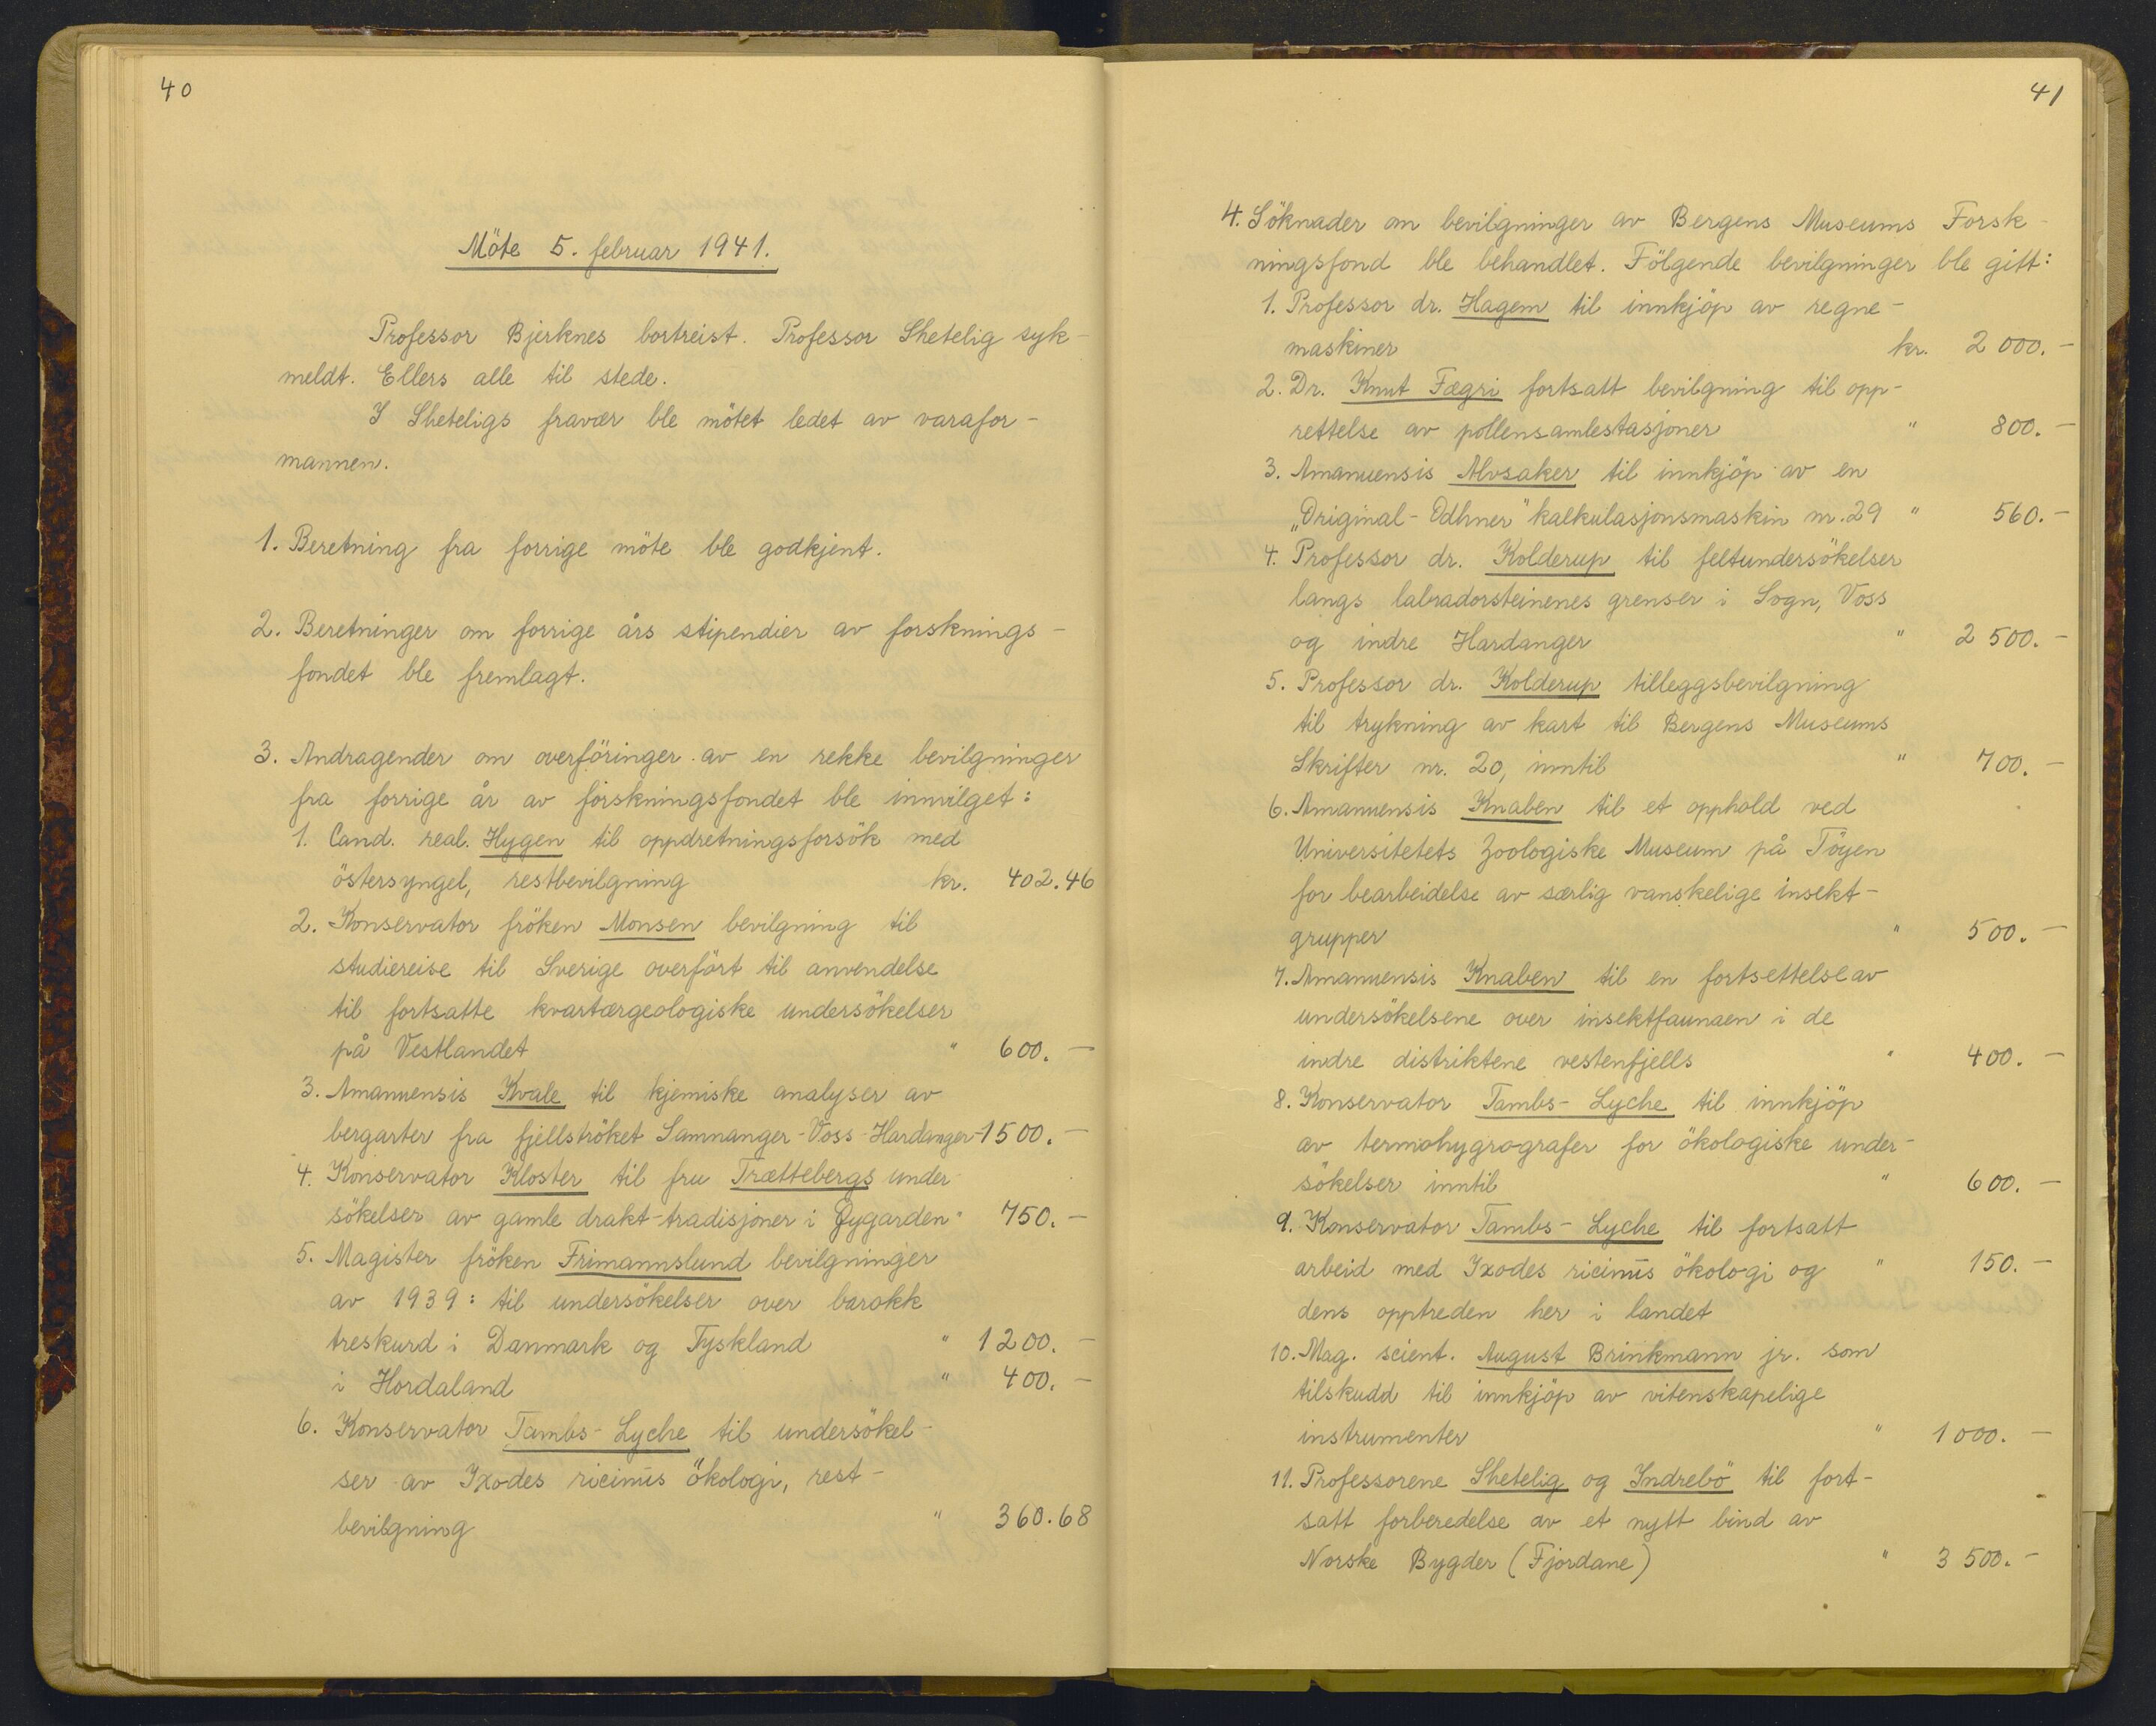 40
Möte 5. februar 1941.
Professor Bjerknes bortreist. Professor Shetelig syk-
meldt. Ellers alle til stede.
I Sheteligs fravær ble mötet ledet av varafor-
mannen.
1. Beretning fra forrige möte ble godkjent.
2. Beretninger om forrige års stipendier av forsknings-
fondet ble fremlagt.
3. Andragender om overföringer av en rekke bevilgninger
fra forrige år av forskningsfondet ble innvilget:
1. Cand. real. Hygen til oppdretningsforsök med
östersyngel, restbevilgning kr. 402.46
2. Konservator fröken Monsen bevilgning til
studiereise til Sverige overfört til anvendelse
til fortsatte kvartærgeologiske undersökelser
på Vestlandet " 600. —
3. Amanuensis Kvale til kjemiske analyser av
bergarter fra fjellströket Samnanger-Voss-Hardanger-1500. —
4. Konservator Kloster til fru Trættebergs under
sökelser av gamle drakt-tradisjoner i Öygarden " 750. —
5. Magister fröken Frimannslund bevilgninger
av 1939: til undersökelser over barokk
treskurd i Danmark og Tyskland " 1200. —
i Hordaland " 400. —
6. Konservator Tambs-Lyche til undersökel-
ser av Ixodes ricinus ökologi, rest-
bevilgning " 360.68
41
4. Söknader om bevilgninger av Bergens Museums Forsk-
ningsfond ble behandlet. Fölgende bevilgninger ble gitt:
1. Professor dr. Hagem til innkjöp av regne-
maskiner kr. 2 000. —
2. Dr. Knut Fægri fortsatt bevilgning til opp-
rettelse av pollensamlestasjoner " 800. —
3. Amanuensis Alvsaker til innkjöp av en
„Original-Odhner" kalkulasjonsmaskin nr. 29 " 560. —
4. Professor dr. Kolderup til feltundersökelser
langs labradorsteinenes grenser i Sogn, Voss
og indre Hardanger " 2 500. —
5. Professor dr. Kolderup tilleggsbevilgning
til trykning av kart til Bergens Museums
Skrifter nr. 20, inntil " 700. —
6. Amanuensis Knaben til et opphold ved
Universitetets Zoologiske Museum på Töyen
for bearbeidelse av særlig vanskelige insekt-
grupper " 500. —
7. Amanuensis Knaben til en fortsettelse av
undersökelsene over insektfaunaen i de
indre distriktene vestenfjells " 400. —
8. Konservator Tambs-Lyche til innkjöp
av termohygrografer for ökologiske under-
sökelser inntil " 600. —
9. Konservator Tambs-Lyche til fortsatt
arbeid med Ixodes ricinus ökologi og " 150. —
dens opptreden her i landet
10. Mag. scient. August Brinkmann jr. som
tilskudd til innkjöp av vitenskapelige
instrumenter " 1 000. —
11. Professorene Shetelig og Indrebö til fort-
satt forberedelse av et nytt bind av
Norske Bygder (Fjordane) " 3 500. —